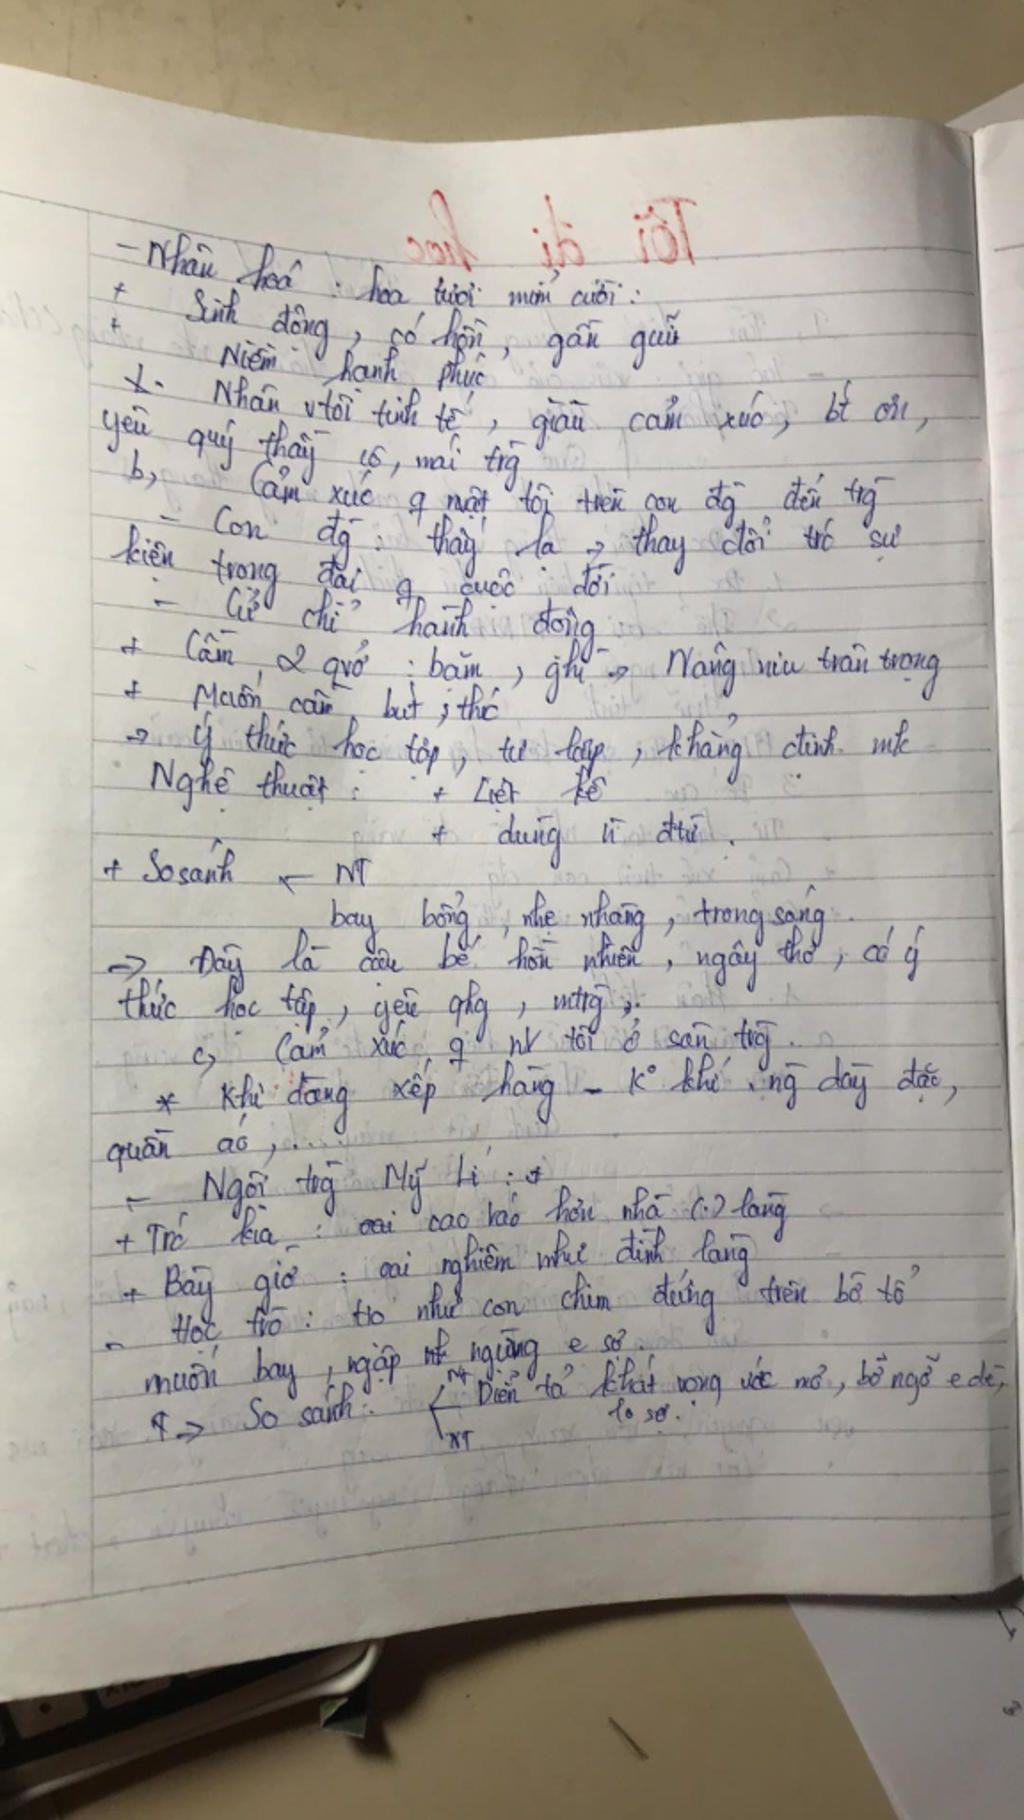 Tôi đi học
- Nhân hoá : hoa tươi mỉm cười :
+ Sinh động, có hồn, gần gũi
+ Niềm hạnh phúc
Nhân vtôi tinh tế, giàu cảm xúc, bt ơn,
yêu quý thầy cô, mái trg
b, Cảm xúc q nvật tôi trên con đg đến trg
- Con đg : thấy lạ → thay đổi trc sự
kiện trong đại q cuộc đời
- Cử chỉ hành động
+ Cầm 2 qvở : bặm, ghì → Nâng niu trân trọng
+ Muốn cầm bút, thc
→ Ý thức học tập, tự lập, khẳng định mk
Nghệ thuật : + Liệt kê
+ dùng đtừ.
+ So sánh ← NT
bay bổng, nhẹ nhàng, trong sáng.
→ Đây là cậu bé hồn nhiên, ngây thơ, có ý
thức học tập, yêu qhg, mtrg.
c, Cảm xúc q nv tôi ở sân trg.
* Khi đang xếp hàng - K° khí : ng dày đặc,
quần áo,...
- Ngôi trg Mỹ Lí : +
+ Trc kia : oai cao ráo hơn nhà (.) làng
+ Bây giờ : oai nghiêm như đình làng
- Học trò : to như con chim đứng trên bờ tổ
muốn bay, ngập ngừng e sợ.
→ So sánh : NT Diễn tả khát vọng ước mơ, bỡ ngỡ e dè,
lo sợ.